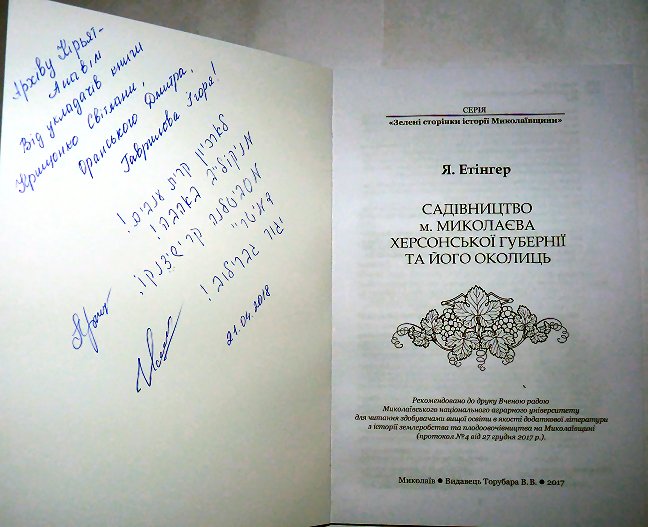 Архіву Кір'ят-
Анавім
Від укладачів книги
Крищенко Світлани,
Оранського Дмитра,
Гаврилова Ігоря!
לארכיון קרית ענבים!
מניקולייב באהבה!
מסבטלנה קרישצנקו,
דמיטרי
יגור גברילוב!
21.04.2018
СЕРІЯ
«Зелені сторінки історії Миколаївщини»
Я. Етінгер
САДІВНИЦТВО
м. МИКОЛАЄВА
ХЕРСОНСЬКОЇ ГУБЕРНІЇ
ТА ЙОГО ОКОЛИЦЬ
Рекомендовано до друку Вченою радою
Миколаївського національного аграрного університету
для читання здобувачами вищої освіти в якості додаткової літератури
з історії землеробства та плодоовочівництва на Миколаївщині
(протокол №4 від 27 грудня 2017 р.).
Миколаїв ● Видавець Торубара В.В. ● 2017